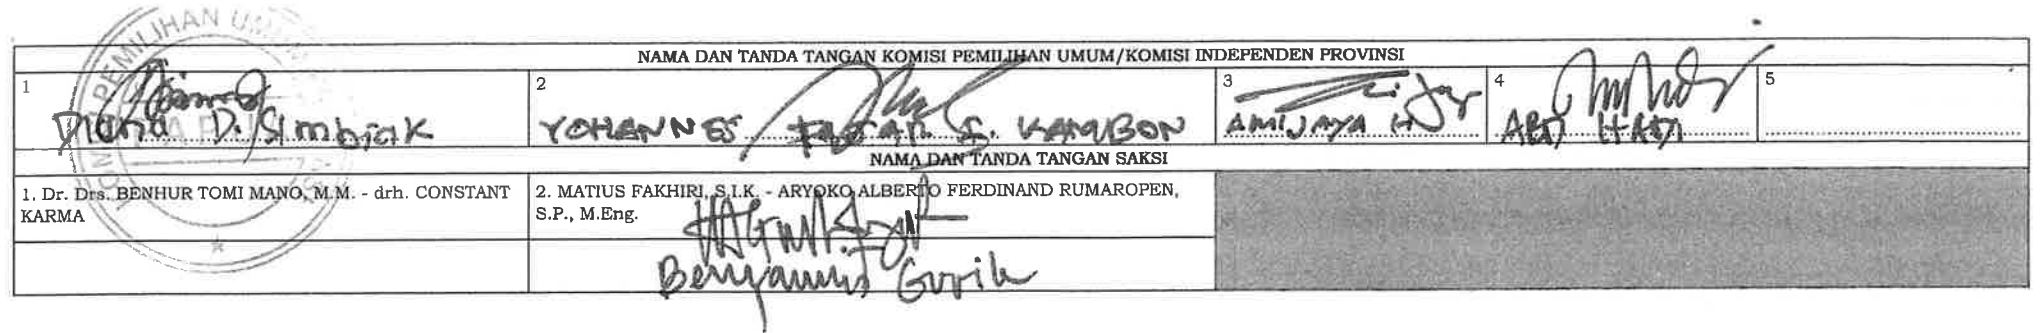 NAMA DAN TANDA TANGAN KOMISI PEMILIHAN UMUM/KOMISI INDEPENDEN PROVINSI
1
2
3
4
5
Diana D. Simbiak
YOHANNES Fajar S. KAMBON
AMIJAYA H
ABD HADI
NAMA DAN TANDA TANGAN SAKSI
1. Dr. Drs. BENHUR TOMI MANO, M.M. - drh. CONSTANT
KARMA
2. MATIUS FAKHIRI, S.I.K. - ARYOKO ALBERTO FERDINAND RUMAROPEN,
S.P., M.Eng.
Benyamin Gurik